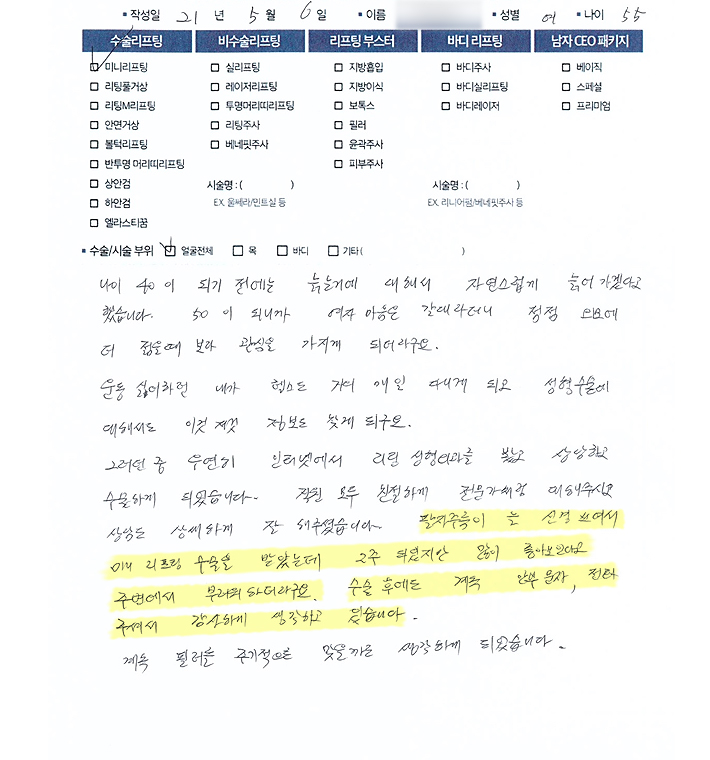 • 작성일 21 년 5 월 6 일 • 이름 • 성별 여 • 나이 55
수술리프팅 비수술리프팅 리프팅 부스터 바디 리프팅 남자 CEO 패키지
미니리프팅 실리프팅 지방흡입 바디주사 베이직
리팅풀거상 레이저리프팅 지방이식 바디실리프팅 스페셜
리팅M리프팅 투명머리띠리프팅 보톡스 바디레이저 프리미엄
안면거상 리팅주사 필러
볼턱리프팅 베네핏주사 윤곽주사
반투명 머리띠리프팅 피부주사
상안검 시술명 : ( ) 시술명 : ( )
하안검 EX. 울쎄라/민트실 등 EX. 리니어펌/베네핏주사 등
엘라스티꿈
• 수술/시술 부위 얼굴전체 목 바디 기타 ( )
나이 40이 되기 전에는 늙는거에 대해서 자연스럽게 늙어 가겠다고
했습니다. 50이 되니까 여자 마음은 갈대라더니 점점 외모에
더 젊을때 보다 관심을 가지게 되더라구요.
운동 싫어하던 내가 헬스도 가며 개인 다니게 되고 성형수술에
대해서도 이것 저것 정보도 찾게 되구요.
그러던 중 우연히 인터넷에서 리팅 성형외과를 보고 상담하고
수술하게 되었습니다. 직원 모두 친절하게 전문가처럼 대해주시고
상담도 상세하게 잘 해주셨습니다. 팔자주름이 늘 신경 쓰여서
미니 리프팅 수술을 받았는데 2주 되었지만 많이 좋아보인다고
주변에서 부러워 하더라구요. 수술 후에도 계속 안부 문자, 전화
주셔서 감사하게 생각하고 있습니다.
계속 필러를 주기적으로 맞을까도 생각하게 되었습니다.